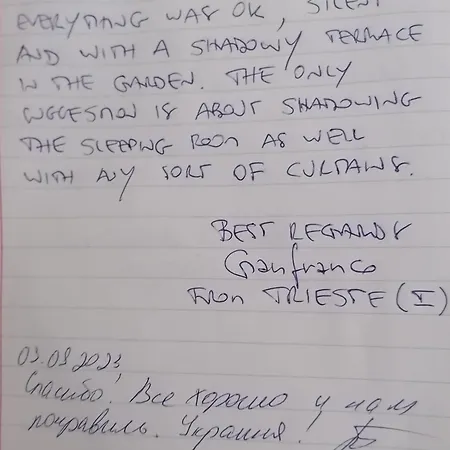 EVERYTHING WAS OK, SILENT
AND WITH A SHADOWY TERRACE
IN THE GARDEN. THE ONLY
SUGGESTION IS ABOUT SHADOWING
THE SLEEPING ROOM AS WELL
WITH ANY SORT OF CURTAINS.
BEST REGARDS
Gianfranco
FROM TRIESTE (I)
03.09.2023
Спасибо! Все хорошо и нам
понравилось. Украина!